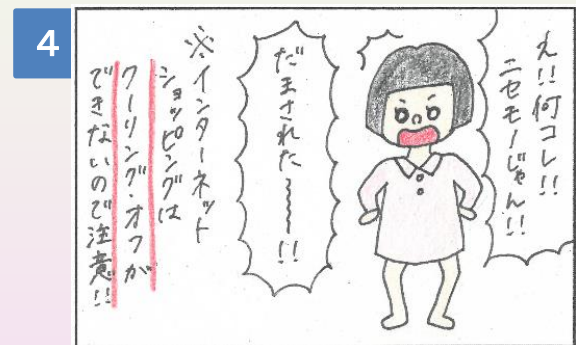 4
え!!何コレ!!
ニセモノじゃん!!
だまされた〜〜〜!!
※インターネット
ショッピングは
クーリング・オフが
できないので注意!!